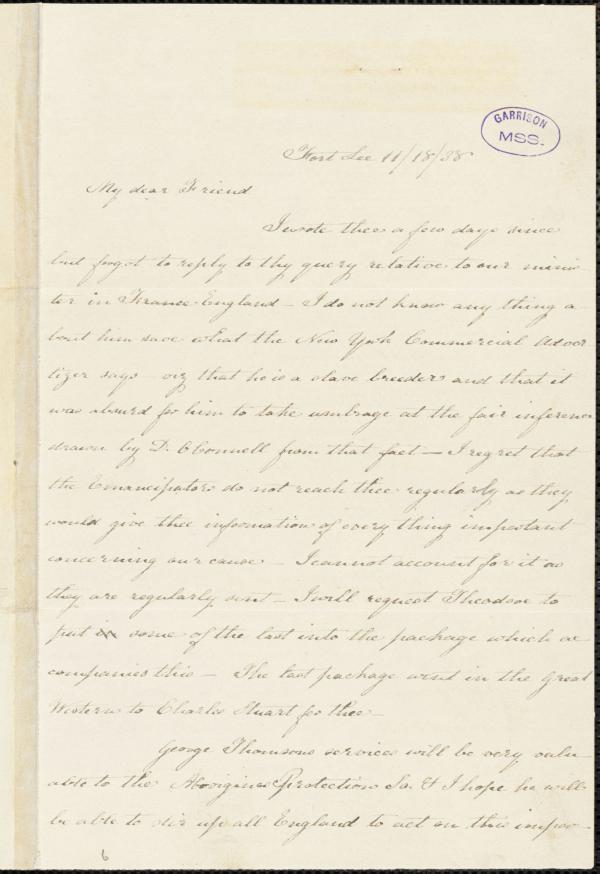 GARRISON
MSS.
Fort Lee 11/18/38
My dear Friend
I wrote thee a few days since
but forgot to reply to thy query relative to our minis-
ter in France England – I do not know any thing a-
bout him save what the New York Commercial Adver
tizer says – viz that he is a slave breeder and that it
was absurd for him to take umbrage at the fair inference
drawn by D. O'Connell from that fact – I regret that
the Emancipators do not reach thee regularly as they
would give thee information of every thing important
concerning our cause – I cannot account for it as
they are regularly sent – I will request Theodore to
put in some of the last into the package which ac
companies this – The last package went in the Great
Western to Charles Stuart for thee –
George Thomsons services will be very valu-
able to the Aborigines Protection So. & I hope he will
be able to stir up all England to act on this impor-
6